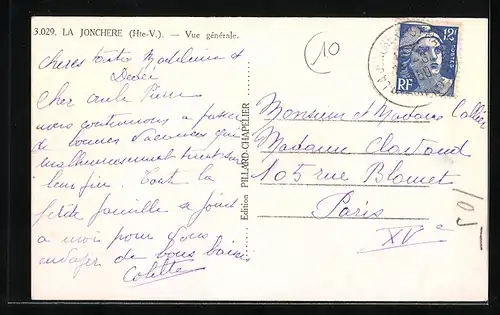 3.029. LA JONCHERE (Hte-V.). — Vue générale.
chères tantes Madeleine et
Cher oncle Pierre
nous continuons a passer
de bonnes vacances qui
malheureusement tirent sur
leur fin. Toute la
petite famille se joint
a moi pour vous
envoyer de bons baisers
Colette
Edition PILLARD-CHAPELIER
10
12F
POSTES
RF
Monsieur et Madame
Madame
105 rue Blomet
Paris
XVe
105